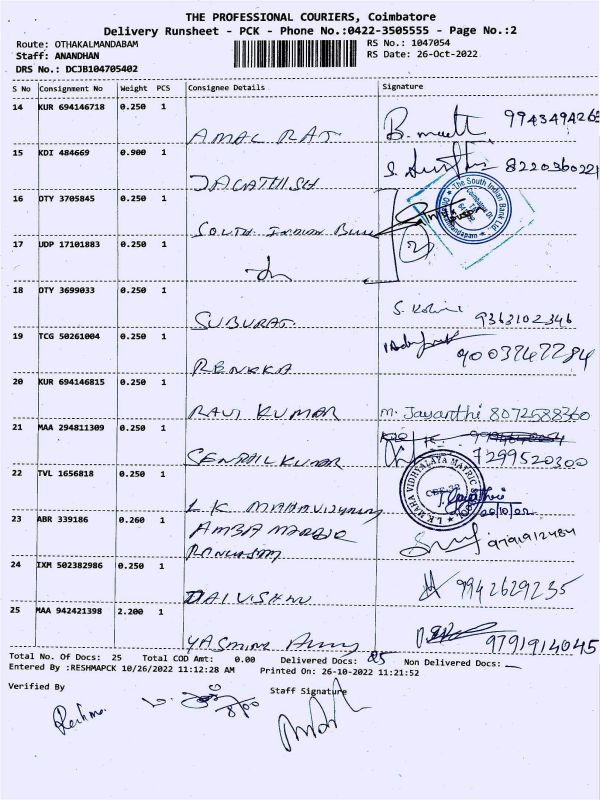 THE PROFESSIONAL COURIERS, Coimbatore
Delivery Runsheet - PCK - Phone No.:0422-3505555 - Page No.:2
Route: OTHAKALMANDABAM
RS No.: 1047054
Staff: ANANDHAN
RS Date: 26-Oct-2022
DRS No.: DCJB104705402
S No Consignment No Weight PCS Consignee Details Signature
14 KUR 694146718 0.250 1
AMAL RAJ
15 KDI 484669 0.900 1
JAGATHISH 8220360221
16 OTY 3705845 0.250 1
SOUTH INDIAN
The South Indian Bank Ltd
17 UDP 17101883 0.250 1
2
18 OTY 3699033 0.250 1
SUBURAJ 9363102346
19 TCG 50261004 0.250 1
RENUKA 9003747784
20 KUR 694146815 0.250 1
RAVI KUMAR M. Jayanthi 8072588360
21 MAA 294811309 0.250 1
SENTHIL KUMAR 7299520300
22 TVL 1656818 0.250 1
L K
L.K. MAHA VIDHYALAYA MATRIC
23 ABR 339186 0.260 1
AMBA 9791912484
24 IXM 502382986 0.250 1
SAI VISHNU 9942629235
25 MAA 942421398 2.200 1
YASMINE 9791914045
Total No. Of Docs: 25 Total COD Amt: 0.00 Delivered Docs: 25 Non Delivered Docs: —
Entered By :RESHMAPCK 10/26/2022 11:12:28 AM Printed On: 26-10-2022 11:21:52
Verified By Staff Signature
Reshma